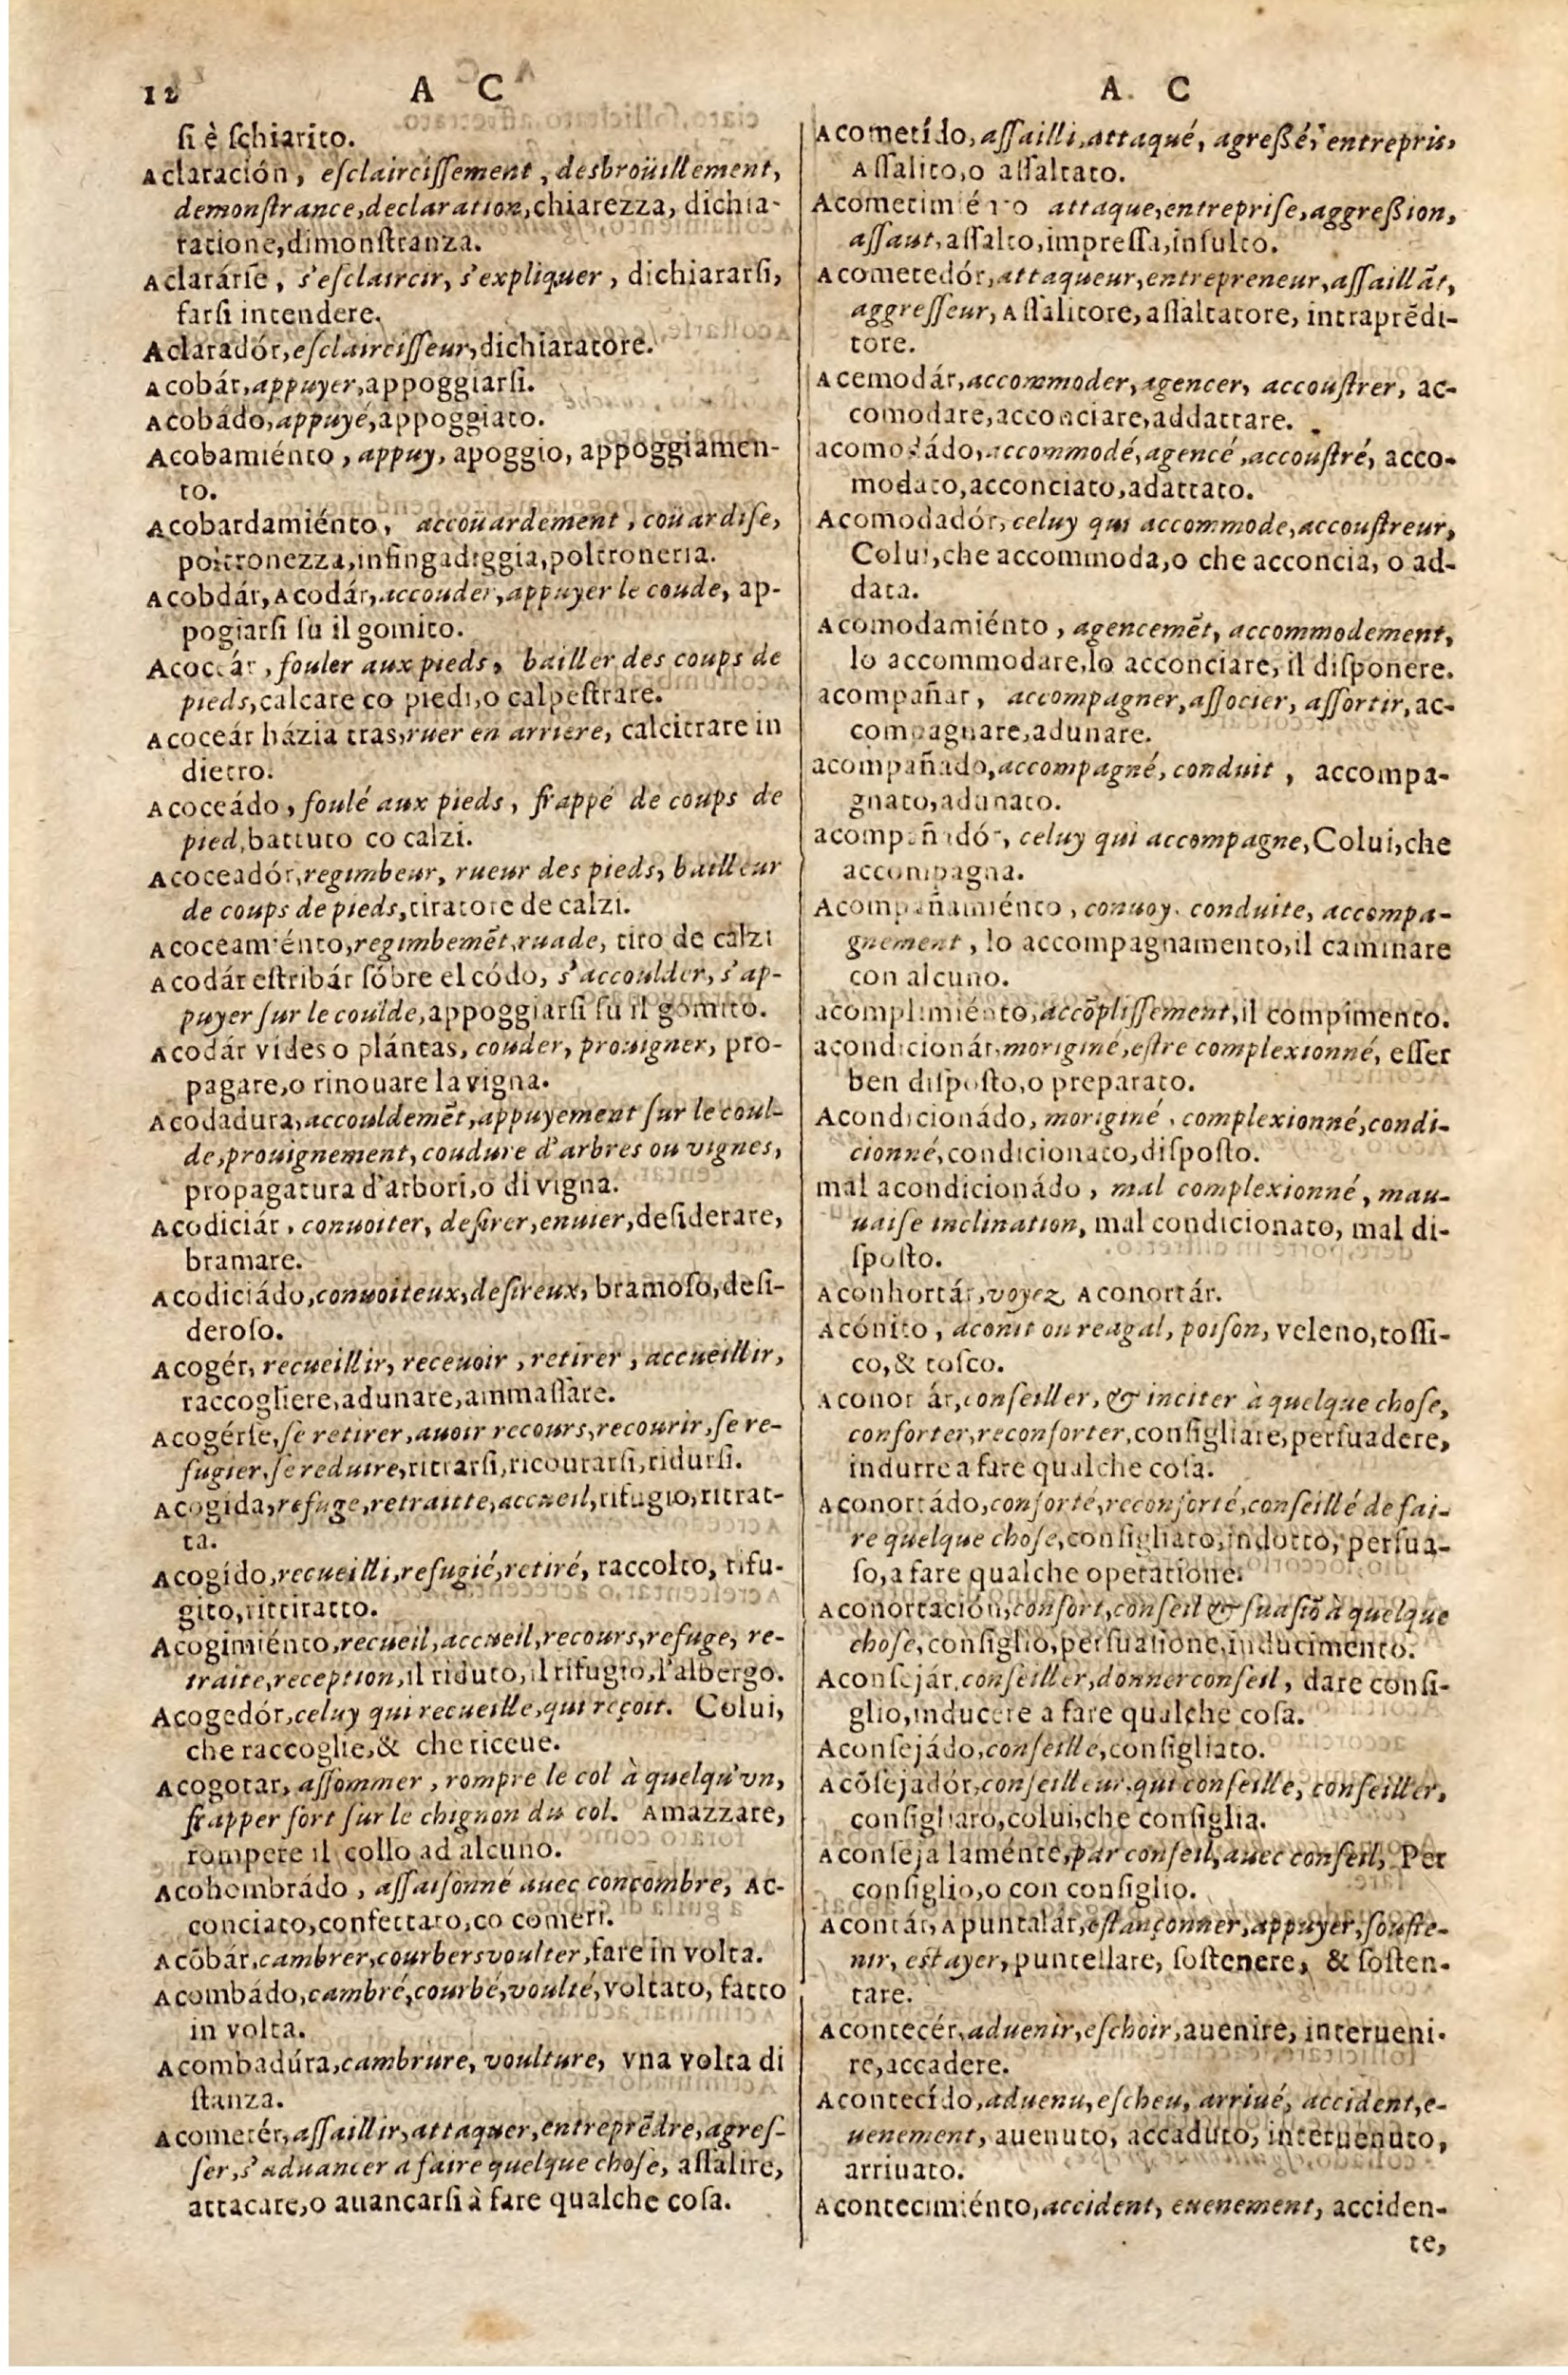 12 A C
ſi è ſchiarito.
Aclaración, eſclairciſſement, desbroüillement,
demonſtrance, declaration, chiarezza, dichia-
ratione, dimonſtranza.
Aclarárſe, s'eſclaircir, s'expliquer, dichiararſi,
farſi intendere.
Aclaradór, eſclairciſſeur, dichiaratore.
Acobár, appuyer, appoggiarſi.
Acobádo, appuyé, appoggiato.
Acobamiénto, appuy, apoggio, appoggiamen-
to.
Acobardamiénto, accoüardement, coüardiſe,
poltronezza, infingadiggia, poltroneria.
Acobdár, Acodár, accouder, appuyer le coude, ap-
pogiarſi ſu il gomito.
Acoceár, fouler aux pieds, bailler des coups de
pieds, calcare co piedi, o calpeſtrare.
Acoceár házia tras, ruer en arriere, calcitrare in
dietro.
Acoceádo, foulé aux pieds, frappé de coups de
pied, battuto co calzi.
Acoceadór, regimbeur, rueur des pieds, bailleur
de coups de pieds, tiratore de calzi.
Acoceamiénto, regimbemẽt, ruade, tiro de calzi
Acodár eſtribár ſóbre el códo, s'accoulder, s'ap-
puyer ſur le coulde, appoggiarſi ſu il gomito.
Acodár vides o plántas, couder, prouigner, pro-
pagare, o rinouare la vigna.
Acodadura, accouldemẽt, appuyement ſur le coul-
de, prouignement, coudure d'arbres ou vignes,
propagatura d'arbori, o di vigna.
Acodiciár, conuoiter, deſirer, enuier, deſiderare,
bramare.
Acodiciádo, conuoiteux, deſireux, bramoſo, deſi-
deroſo.
Acogér, recueillir, receuoir, retirer, accueillir,
raccogliere, adunare, ammaſſare.
Acogérſe, ſe retirer, auoir recours, recourir, ſe re-
fugier, ſe reduire, ritrarſi, ricourarſi, ridurſi.
Acogída, refuge, retraitte, accueil, rifugio, ritrat-
ta.
Acogído, recueilli, refugié, retiré, raccolto, rifu-
gito, rittiratto.
Acogimiénto, recueil, accueil, recours, refuge, re-
traite, reception, il riduto, il rifugio, l'albergo.
Acogedór, celuy qui recueille, qui reçoit. Colui,
che raccoglie, & che riceue.
Acogotar, aſſommer, rompre le col à quelqu'vn,
frapper fort ſur le chignon du col. Amazzare,
rompere il collo ad alcuno.
Acohombrádo, aſſaiſonné auec concombre, Ac-
conciato, confettato, co comeri.
Acõbár, cambrer, courber, voulter, fare in volta.
Acombádo, cambré, courbé, voulté, voltato, fatto
in volta.
Acombadúra, cambrure, voulture, vna volta di
ſtanza.
Acometér, aſſaillir, attaquer, entreprẽdre, agreſ-
ſer, s'aduancer a faire quelque choſe, aſſalire,
attacare, o auancarſi à fare qualche coſa.
A. C
Acometído, aſſailli, attaqué, agreßé, entrepris,
Aſſalito, o aſſaltato.
Acometimiénto attaque, entrepriſe, aggreßion,
aſſaut, aſſalto, impreſſa, inſulto.
Acometedór, attaqueur, entrepreneur, aſſaillãt,
aggreſſeur, Aſſalitore, aſſaltatore, intraprẽdi-
tore.
Acemodár, accommoder, agencer, accouſtrer, ac-
comodare, acconciare, addattare.
acomodádo, accommodé, agencé, accouſtré, acco-
modato, acconciato, adattato.
Acomodadór, celuy qui accommode, accouſtreur,
Colui, che accommoda, o che acconcia, o ad-
data.
Acomodamiénto, agencemẽt, accommodement,
lo accommodare, lo acconciare, il diſponere.
acompañar, accompagner, aſſocier, aſſortir, ac-
compagnare, adunare.
acompañado, accompagné, conduit, accompa-
gnato, adunato.
acompañadór, celuy qui accompagne, Colui, che
accompagna.
Acompañamiénto, conuoy, conduite, accompa-
gnement, lo accompagnamento, il caminare
con alcuno.
acomplimiénto, accõpliſſement, il compimento.
acondicionár, moriginé, eſtre complexionné, eſſer
ben diſpoſto, o preparato.
Acondicionádo, moriginé, complexionné, condi-
cionné, condicionato, diſpoſto.
mal acondicionádo, mal complexionné, mau-
uaiſe inclination, mal condicionato, mal di-
ſpoſto.
Aconhortár, voyez Aconortár.
Acónito, aconit ou reagal, poiſon, veleno, toſſi-
co, & toſco.
Aconortár, conſeiller, & inciter à quelque choſe,
conforter, reconforter, conſigliare, perſuadere,
indurre a fare qualche coſa.
Aconortádo, conforté, reconforté, conſeillé de fai-
re quelque choſe, conſigliato, indotto, perſua-
ſo, a fare qualche operatione.
Aconortación, confort, conſeil & ſuaſiõ à quelque
choſe, conſiglio, perſuatione, inducimento.
Aconſejár, conſeiller, donner conſeil, dare conſi-
glio, inducere a fare qualche coſa.
Aconſejádo, conſeillé, conſigliato.
Acõſejadór, conſeilleur, qui conſeille, conſeiller,
conſigliaro, colui, che conſiglia.
Aconſejadaménte, par conſeil, auec conſeil, Per
conſiglio, o con conſiglio.
Acontár, Apuntalár, eſtançonner, appuyer, ſouſte-
nir, eſtayer, puntellare, ſoſtenere, & ſoſten-
tare.
Acontecér, aduenir, eſchoir, auenire, interueni-
re, accadere.
Acontecído, aduenu, eſcheu, arriué, accident, e-
uenement, auenuto, accaduto, interuenuto,
arriuato.
Acontecimiénto, accident, euenement, acciden-
te,